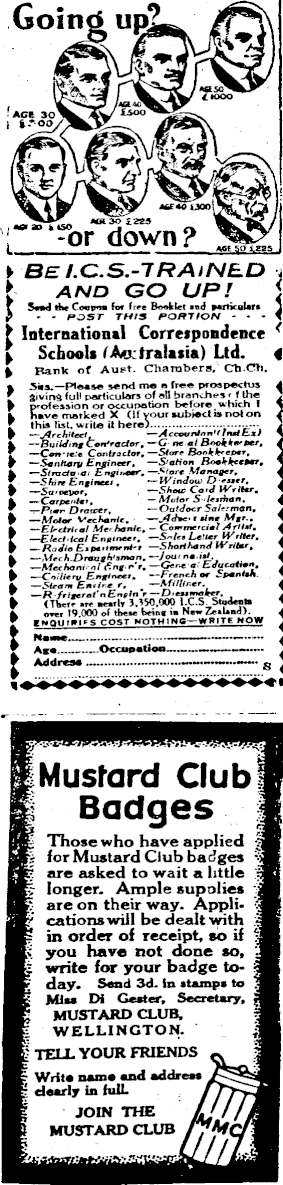 Going up?
AGE 50
£1000
AGE 40
£500
AGE 30
AGE 20 £150
AGE 30 £225
AGE 40 £300
AGE 50 £225
-or down?
BE I.C.S.-TRAINED
AND GO UP!
Send the Coupon for free Booklet and particulars
- - POST THIS PORTION - - -
International Correspondence
Schools (Australasia) Ltd.
Bank of Aust. Chambers, Ch.Ch.
Sirs.—Please send me a free prospectus
giving full particulars of all branches of the
profession or occupation before which I
have marked X (if your subject is not on
this list, write it here)
—Architect, —Accountant (Ind Ex)
—Building Contractor, —General Bookkeeper,
—Concrete Contractor, —Store Bookkeeper,
—Sanitary Engineer, —Station Bookkeeper,
—Structural Engineer, —Store Manager,
—Shire Engineer, —Window Dresser,
—Surveyor, —Show Card Writer,
—Carpenter, —Motor Salesman,
—Plan Drawer, —Outdoor Salesman,
—Motor Mechanic, —Advertising Mgr.,
—Electrical Mechanic, —Commercial Artist,
—Electrical Engineer, —Sales Letter Writer,
—Radio Experimenter —Shorthand Writer,
—Mech. Draughtsman, —Journalist,
—Mechanical Engin'r, —General Education,
—Colliery Engineer, —French or Spanish.
—Steam Engineer, —Milliner,
—Refrigerat'n Engin'r —Dressmaker,
(There are nearly 3,350,000 I.C.S. Students
over 19,000 of these being in New Zealand).
ENQUIRIES COST NOTHING—WRITE NOW
Name
Age Occupation
Address
8
Mustard Club
Badges
Those who have applied
for Mustard Club badges
are asked to wait a little
longer. Ample supplies
are on their way. Appli-
cations will be dealt with
in order of receipt, so if
you have not done so,
write for your badge to-
day. Send 3d. in stamps to
Miss Di Gester, Secretary,
MUSTARD CLUB,
WELLINGTON.
TELL YOUR FRIENDS
Write name and address
clearly in full.
JOIN THE
MUSTARD CLUB
MMC